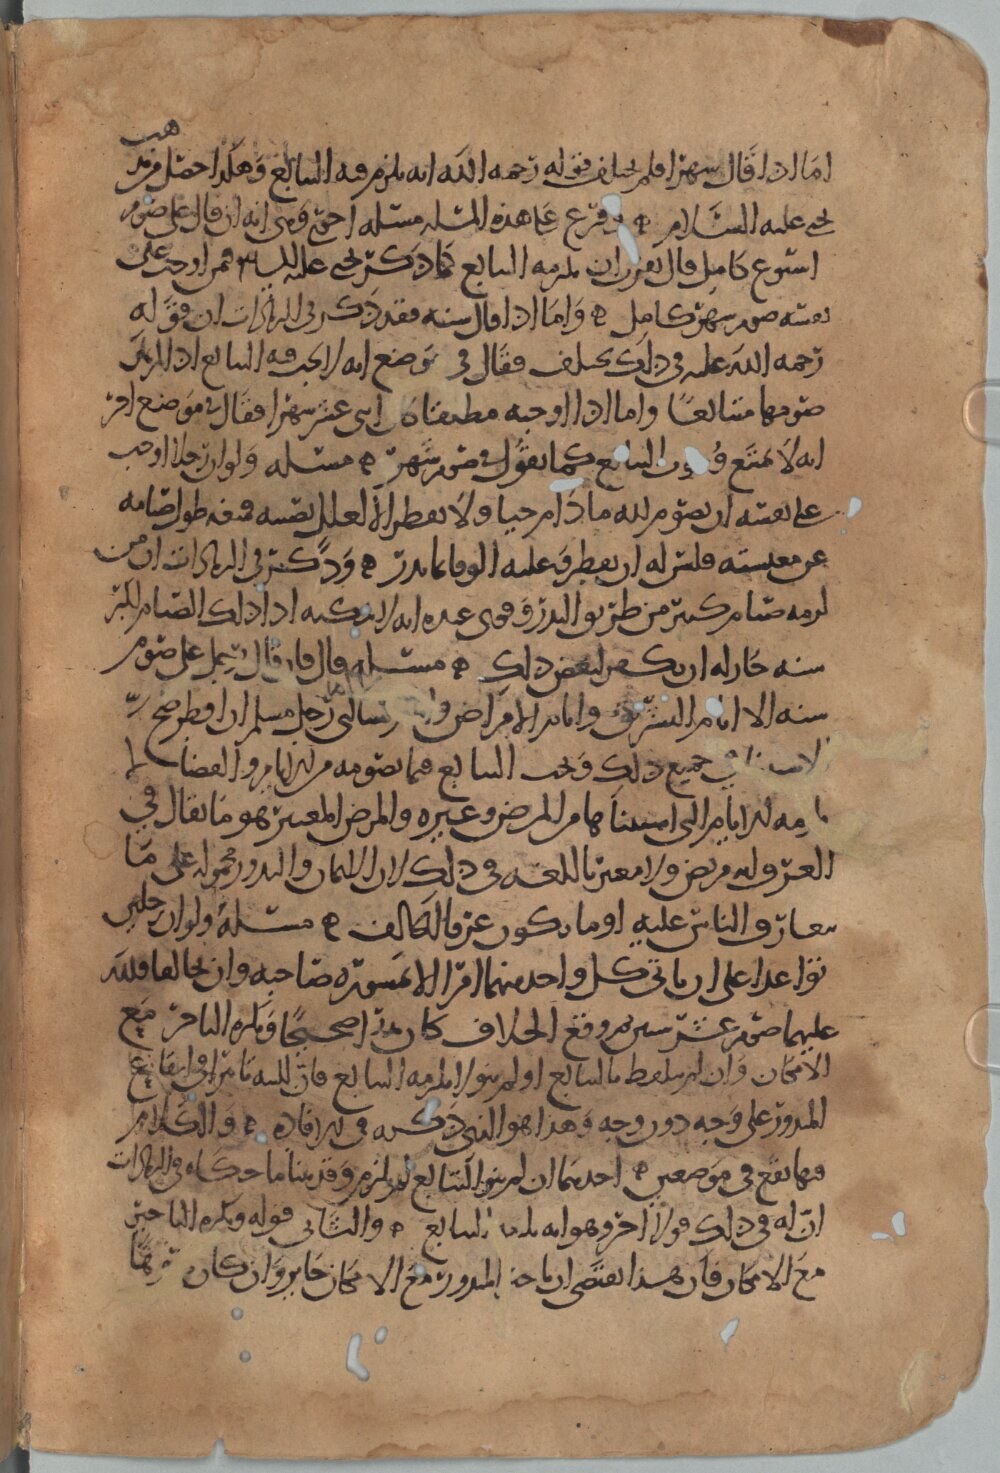 هب
اما اذا قال شهرا فلم يختلف قوله رحمه الله انه يلزم فيه التتابع وهكذا حصل مذ
يحيى عليه السلام ه وفرع على هذه المسلة مسئلة اخرى وهي انه ان قال علي صوم
اسبوع كامل قال يقرب ان يلزمه التتابع كما ذكره يحيى عليه السلم فيمن اوجب على
نفسه صوم شهر كامل ه واما اذا قال سنه فقد ذكر في الزيادات ان قوله
رحمه الله عليه في ذلك مختلف فقال في موضع انه لا يجب فيه التتابع اذا لم يذكر
صومها متتابعا واما اذا اوجبه مطلقا كان اثنى عشر شهرا فقال في موضع اخر
انه لا يمتنع وجوب التتابع كما يقول في صوم شهر ه مسئلة ولو ان رجلا اوجب
على نفسه ان يصوم لله ما دام حيا ولا يفطر الا لعلل تصيبه فمنعه طول صيامه
عن معيشته فليس له ان يفطر وعليه الوفا بما نذر ه وذكر في الزيادات ان من
لزمه صيام كثير من طريق النذر وفحوى عنده انه لا يمكنه اداء ذلك الصيام لكبر
سنه جاز له ان يكفر لبعض ذلك ه مسئلة قال فان قال رجل علي صوم
سنه الا ايام التشريق وايام الامراض و رجل مسلم ان افطر صح
الاستثنا في جميع ذلك ويجب التتابع فيما يصومه من الايام والقضا لا
يلزمه الايام التي استثناها من المرض وغيره والمرض المعتبر هو ما يقال في
العرف انه مريض ولا معتبر باللغه في ذلك لان الايمان والنذور محموله على ما
يتعارف الناس عليه او ما يكون عرفا للحالف ه مسئلة ولو ان رجلين
تواعدا على ان ياتي كل واحد منهما امرا الا بمشورة صاحبه وان تخالفا فلله
عليهما صوم عشر سنين ووقع الخلاف كان نذرا صحيحا ويكره التاخر مع
الامكان وان لم يتلفظ بالتتابع او لم ينو لا يلزمه التتابع فان للنيه تاثيرا في ايقاع
المنذور على وجه دون وجه وهذا هو الذي ذكره في الافادة ه والكلام
فيها يقع في موضعين ه احدهما ان لم ينو التتابع لم يلزم وقد بينا ما حكاه في الزيادات
ان له في ذلك قولا اخر وهو انه يلزمه التتابع ه والثاني قوله ويكره التاخير
مع الامكان فان هذا يقتضي ان تاخير المنذور مع الامكان جائز وان كان مكروها